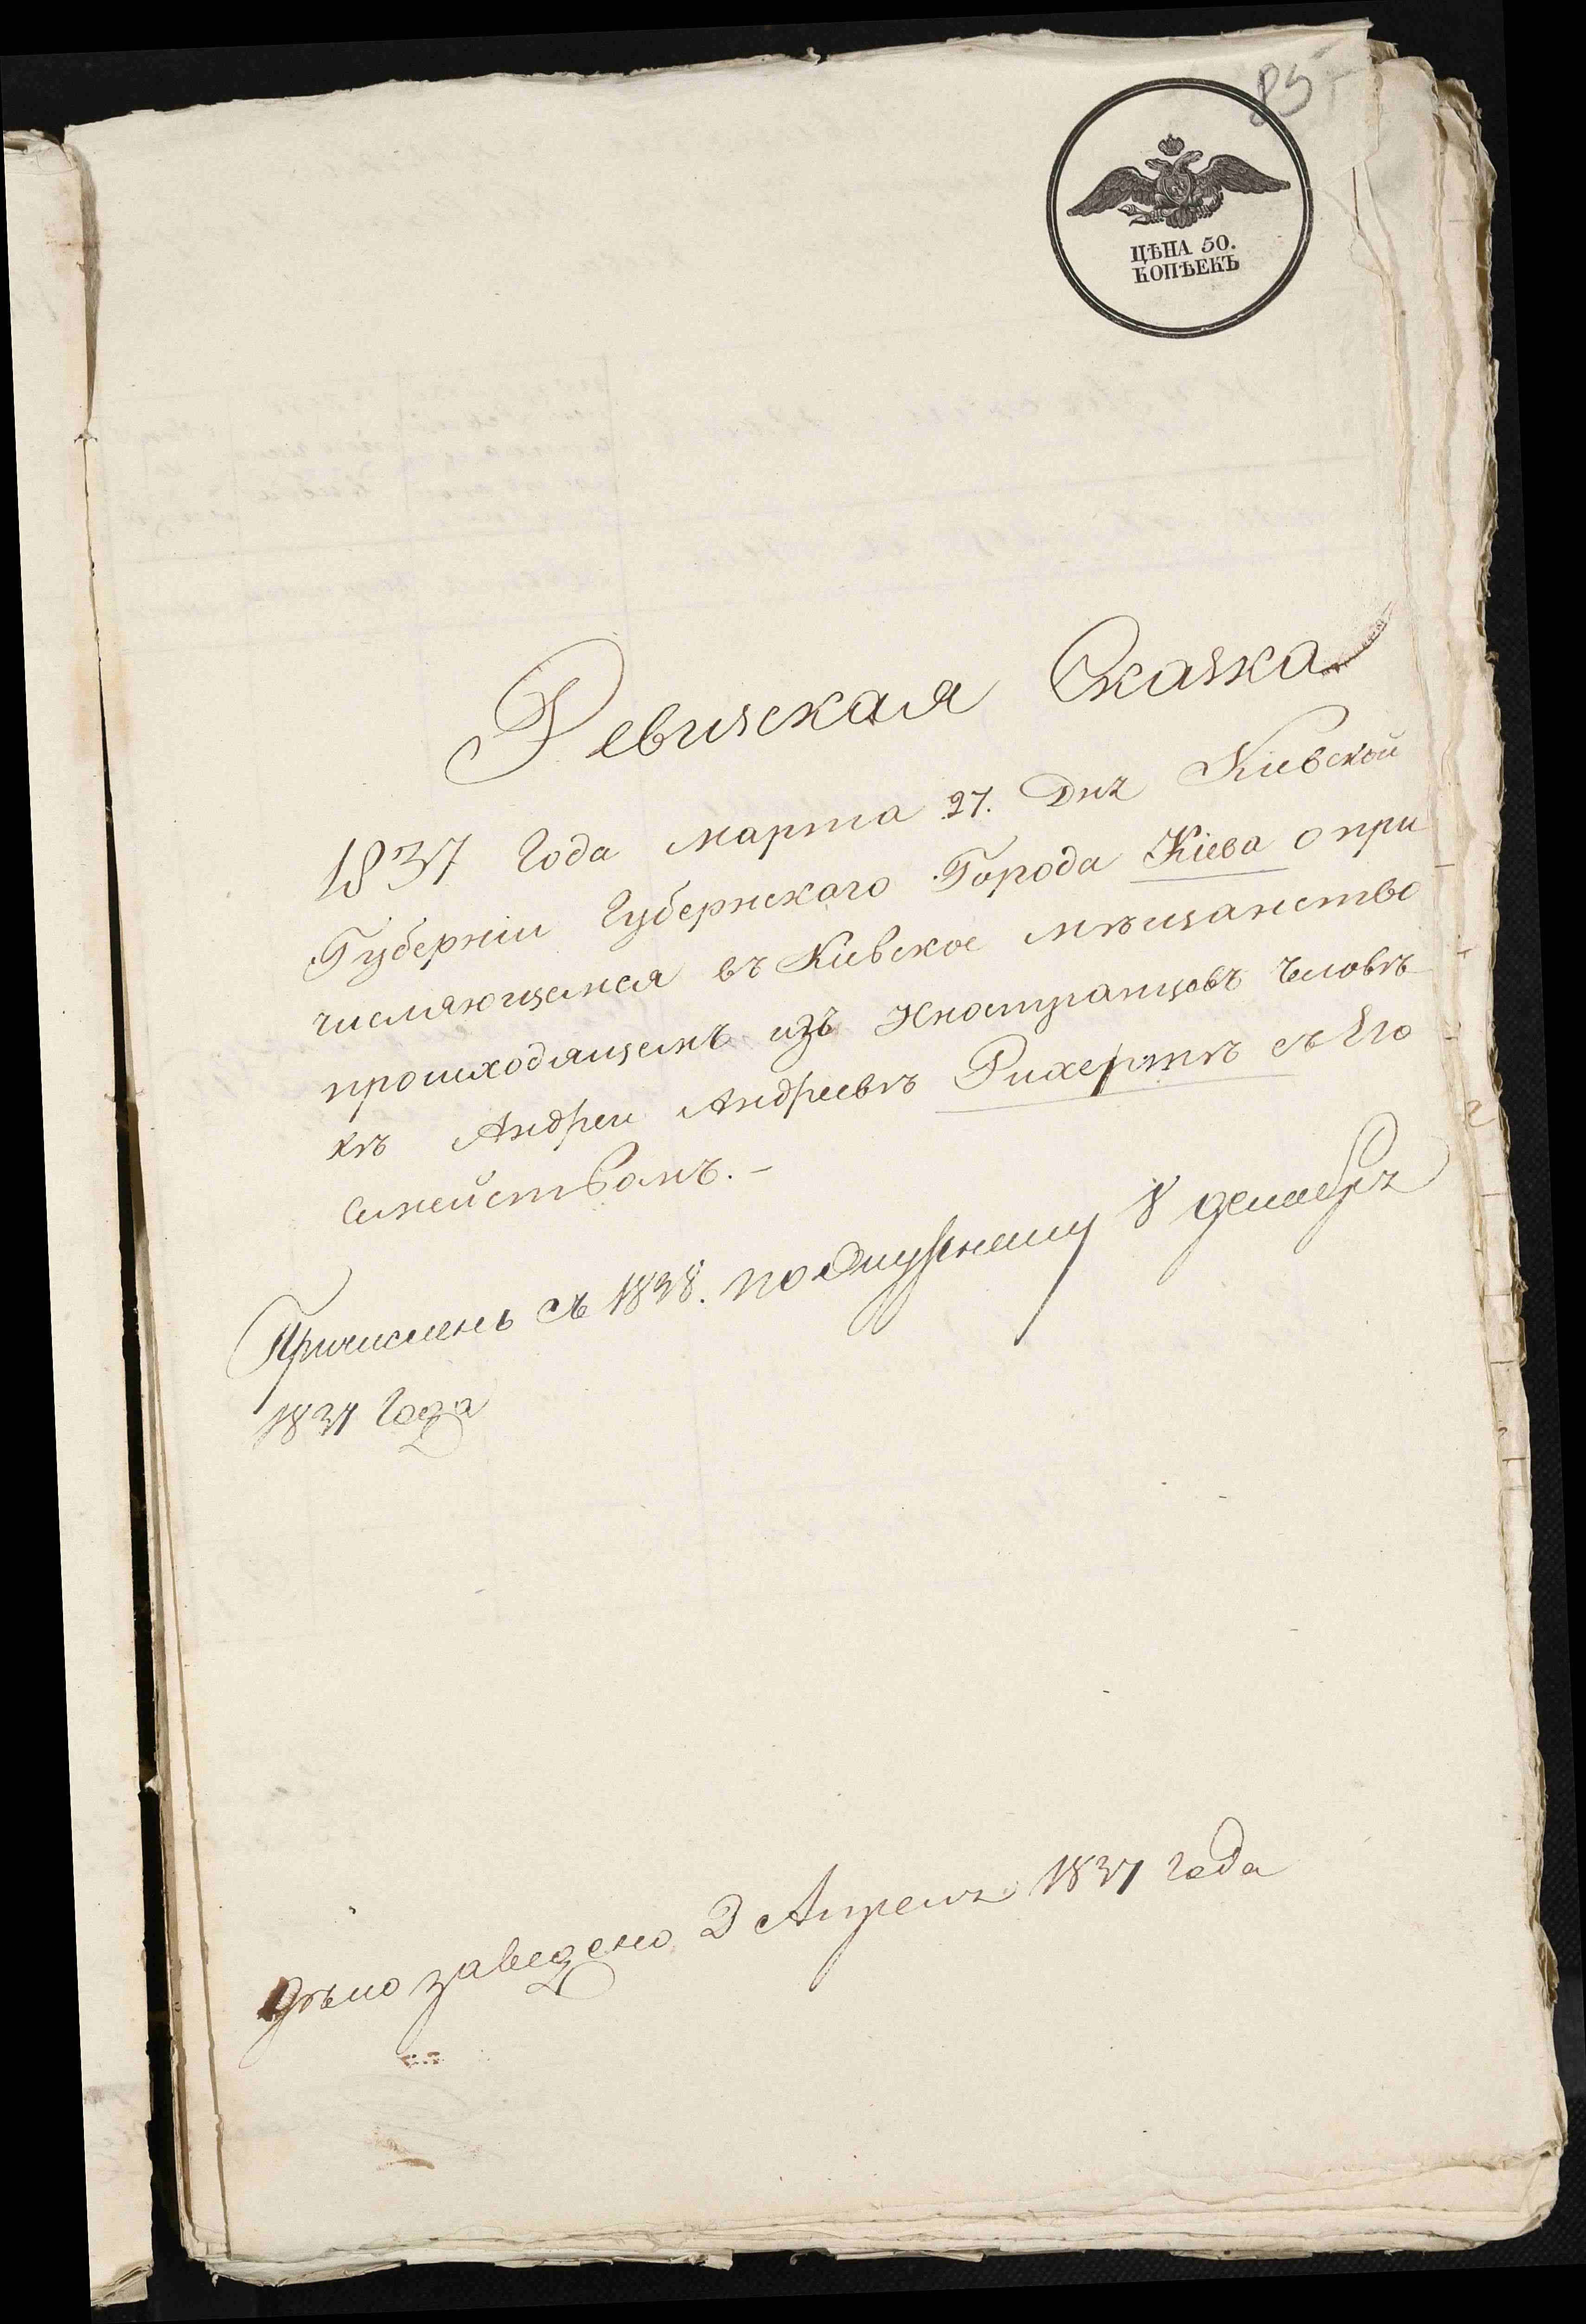 85
ЦѢНА 50.
КОПѢЕКЪ
Ревизская Сказка
1837 Года марта 27. Дня Кіевской
Губерніи Губернскаго Города Кіева о при
числяющемся въ Кіевское мѣщанство
происходящемъ изъ Иностранцовъ Человѣ
кѣ Андреи Андреевѣ Рихертѣ съ Его
семействомъ. —
Причисленъ съ 1838. по 8 декабря
1837 Года
Дѣло заведено 3 Апреля 1837 года